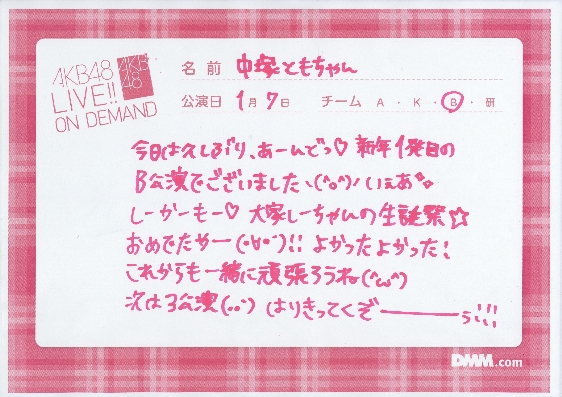 AKB48
LIVE!!
ON DEMAND
AKB
48
名前 中塚ともちゃん
公演日 1月7日 チーム A・K・B・研
今日は久しぶり、あーんでっ♡ 新年1発目の
B公演でございましたヽ(^o^)ノ いぇあ
しーかーもー♡ 大家しーちゃんの生誕祭☆
おめでたやー(・∀・)!! よかったよかった!
これからも一緒に頑張ろうね(^ω^)
次は3公演(..) はりきってくぞーーーーぅ!!!
DMM.com